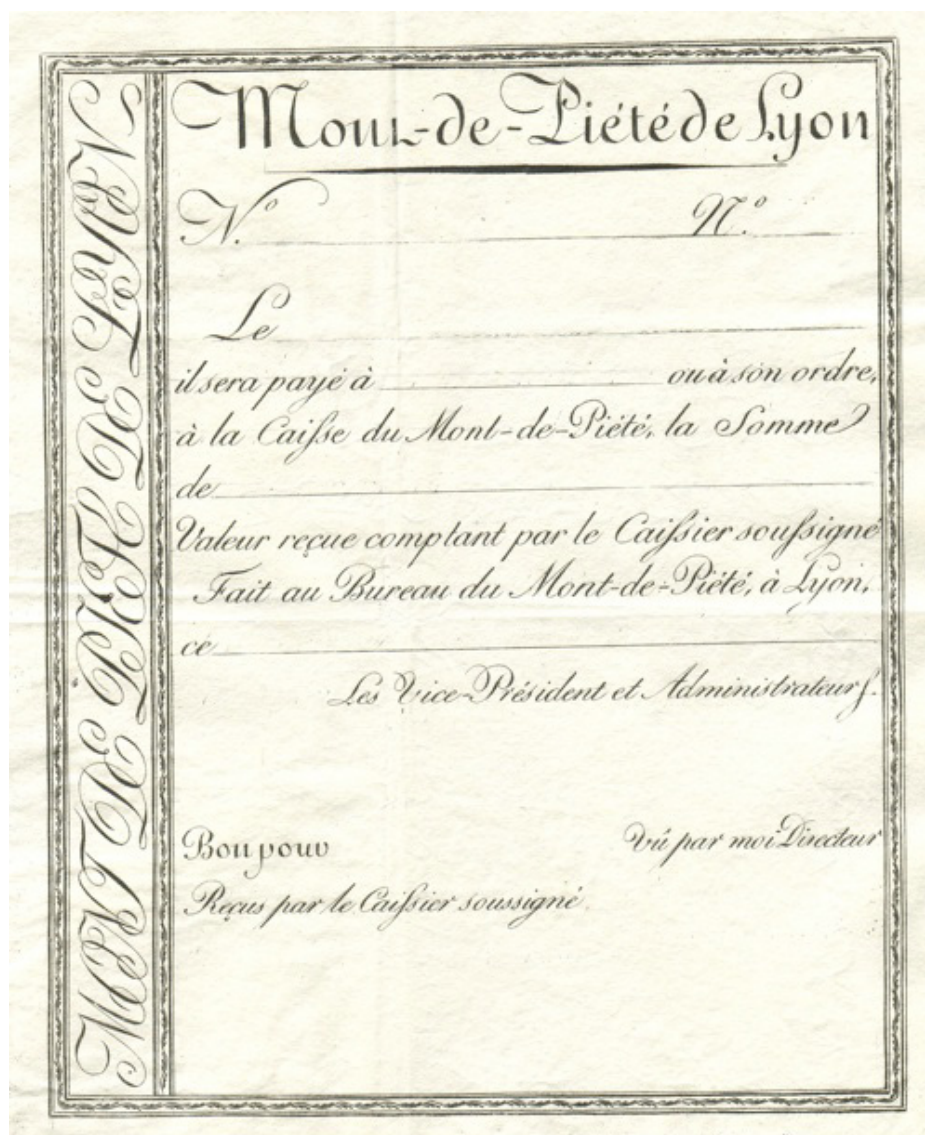 MONT DE PIÉTÉ DE LYON
Mont-de-Piété de Lyon
N.º N.º
Le
il sera payé à ou à son ordre,
à la Caiſse du Mont-de-Piété, la Somme
de
Valeur reçue comptant par le Caiſsier souſsigné
Fait au Bureau du Mont-de-Piété, à Lyon,
ce
Les Vice-Président et Administrateurſ.
Bon pour Vû par moi Directeur
Reçus par le Caiſsier soussigné